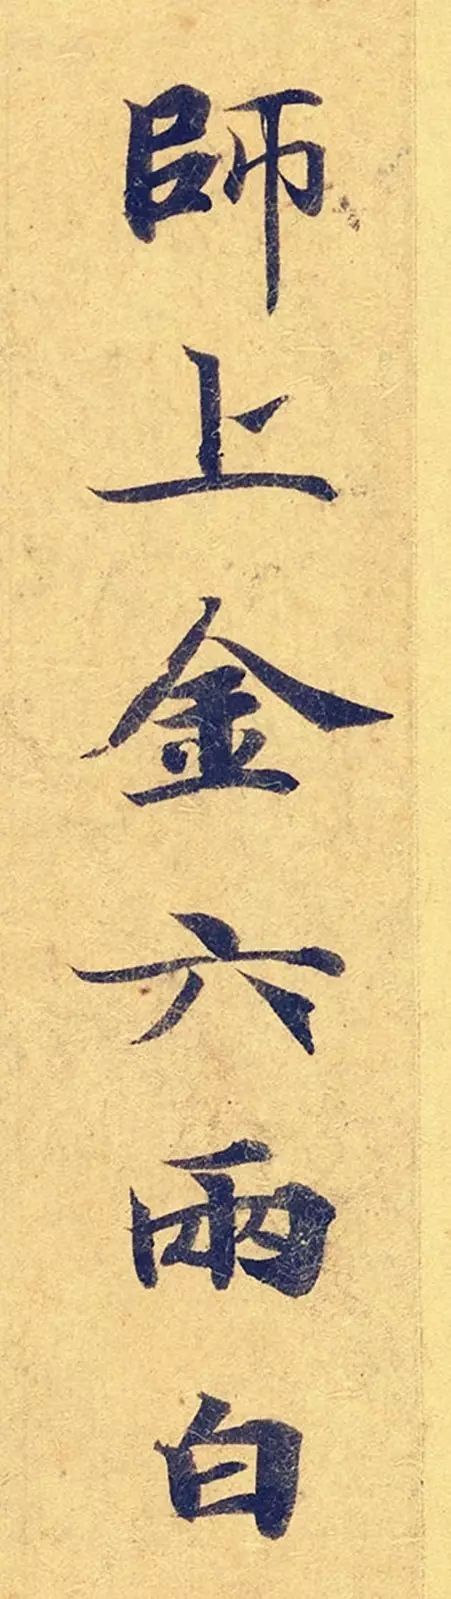 師上金六兩白